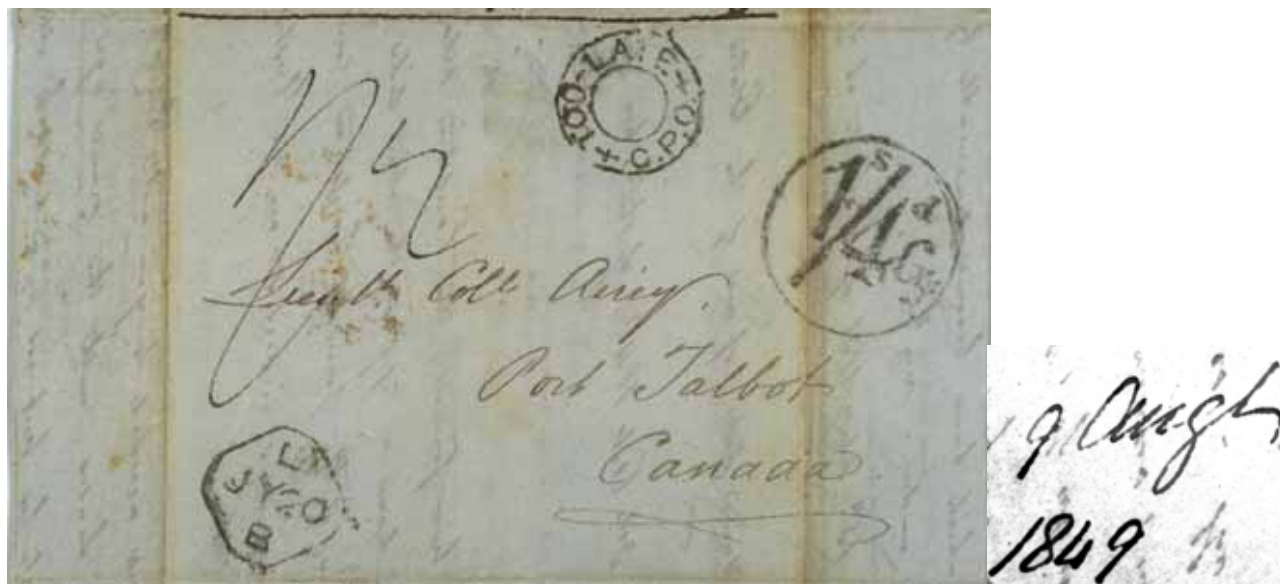 TOO-LATE + G.P.O. +
1/2
1/4
S d
Cy
Lieutt. Coll. Airey.
Port Talbot
Canada
JY 20
B
9 Augt
1849